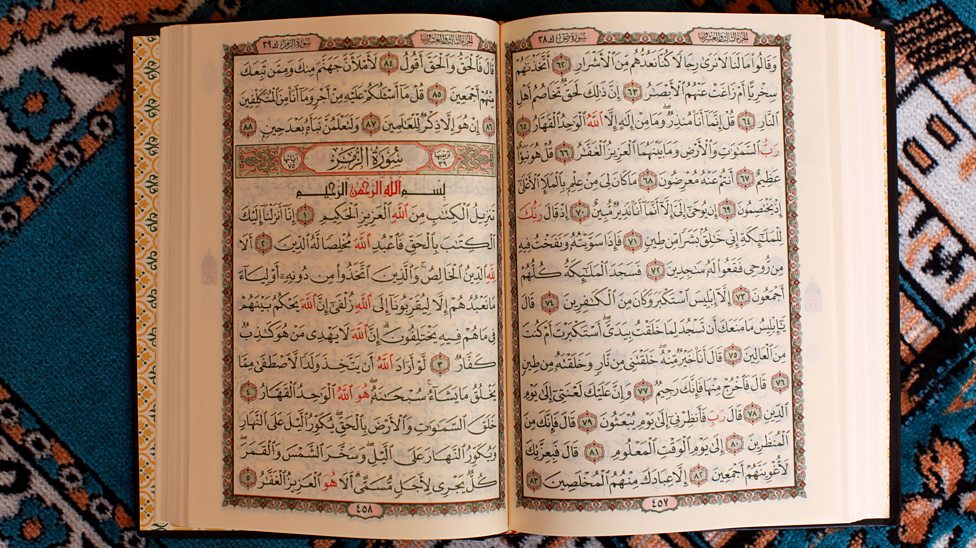 الجزء الثالث والعشرون سورة ص ك ٣٨
وَقَالُوا۟ مَا لَنَا لَا نَرَىٰ رِجَالًا كُنَّا نَعُدُّهُم مِّنَ ٱلْأَشْرَارِ ٦٢ أَتَّخَذْنَٰهُمْ
سِخْرِيًّا أَمْ زَاغَتْ عَنْهُمُ ٱلْأَبْصَٰرُ ٦٣ إِنَّ ذَٰلِكَ لَحَقٌّ تَخَاصُمُ أَهْلِ
ٱلنَّارِ ٦٤ قُلْ إِنَّمَآ أَنَا۠ مُنذِرٌ ۖ وَمَا مِنْ إِلَٰهٍ إِلَّا ٱللَّهُ ٱلْوَٰحِدُ ٱلْقَهَّارُ ٦٥
رَبُّ ٱلسَّمَٰوَٰتِ وَٱلْأَرْضِ وَمَا بَيْنَهُمَا ٱلْعَزِيزُ ٱلْغَفَّٰرُ ٦٦ قُلْ هُوَ نَبَؤٌا۟
عَظِيمٌ ٦٧ أَنتُمْ عَنْهُ مُعْرِضُونَ ٦٨ مَا كَانَ لِىَ مِنْ عِلْمٍۭ بِٱلْمَلَإِ ٱلْأَعْلَىٰٓ
إِذْ يَخْتَصِمُونَ ٦٩ إِن يُوحَىٰٓ إِلَىَّ إِلَّآ أَنَّمَآ أَنَا۠ نَذِيرٌ مُّبِينٌ ٧٠ إِذْ قَالَ رَبُّكَ
لِلْمَلَٰٓئِكَةِ إِنِّى خَٰلِقٌۢ بَشَرًا مِّن طِينٍ ٧١ فَإِذَا سَوَّيْتُهُۥ وَنَفَخْتُ فِيهِ
مِن رُّوحِى فَقَعُوا۟ لَهُۥ سَٰجِدِينَ ٧٢ فَسَجَدَ ٱلْمَلَٰٓئِكَةُ كُلُّهُمْ
أَجْمَعُونَ ٧٣ إِلَّآ إِبْلِيسَ ٱسْتَكْبَرَ وَكَانَ مِنَ ٱلْكَٰفِرِينَ ٧٤ قَالَ
يَٰٓإِبْلِيسُ مَا مَنَعَكَ أَن تَسْجُدَ لِمَا خَلَقْتُ بِيَدَىَّ ۖ أَسْتَكْبَرْتَ أَمْ كُنتَ
مِنَ ٱلْعَالِينَ ٧٥ قَالَ أَنَا۠ خَيْرٌ مِّنْهُ ۖ خَلَقْتَنِى مِن نَّارٍ وَخَلَقْتَهُۥ مِن طِينٍ
٧٦ قَالَ فَٱخْرُجْ مِنْهَا فَإِنَّكَ رَجِيمٌ ٧٧ وَإِنَّ عَلَيْكَ لَعْنَتِىٓ إِلَىٰ يَوْمِ
ٱلدِّينِ ٧٨ قَالَ رَبِّ فَأَنظِرْنِىٓ إِلَىٰ يَوْمِ يُبْعَثُونَ ٧٩ قَالَ فَإِنَّكَ مِنَ
ٱلْمُنظَرِينَ ٨٠ إِلَىٰ يَوْمِ ٱلْوَقْتِ ٱلْمَعْلُومِ ٨١ قَالَ فَبِعِزَّتِكَ
لَأُغْوِيَنَّهُمْ أَجْمَعِينَ ٨٢ إِلَّا عِبَادَكَ مِنْهُمُ ٱلْمُخْلَصِينَ ٨٣
٤٥٧
الجزء الثالث والعشرون سورة الزمر ك ٣٩
قَالَ فَٱلْحَقُّ وَٱلْحَقَّ أَقُولُ ٨٤ لَأَمْلَأَنَّ جَهَنَّمَ مِنكَ وَمِمَّن تَبِعَكَ
مِنْهُمْ أَجْمَعِينَ ٨٥ قُلْ مَآ أَسْـَٔلُكُمْ عَلَيْهِ مِنْ أَجْرٍ وَمَآ أَنَا۠ مِنَ ٱلْمُتَكَلِّفِينَ
٨٦ إِنْ هُوَ إِلَّا ذِكْرٌ لِّلْعَٰلَمِينَ ٨٧ وَلَتَعْلَمُنَّ نَبَأَهُۥ بَعْدَ حِينٍۭ ٨٨
ترتيبها ٣٩ سورة الزمر آياتها ٧٥
بسم الله الرحمن الرحيم
تَنزِيلُ ٱلْكِتَٰبِ مِنَ ٱللَّهِ ٱلْعَزِيزِ ٱلْحَكِيمِ ١ إِنَّآ أَنزَلْنَآ إِلَيْكَ
ٱلْكِتَٰبَ بِٱلْحَقِّ فَٱعْبُدِ ٱللَّهَ مُخْلِصًا لَّهُ ٱلدِّينَ ٢ أَلَا
لِلَّهِ ٱلدِّينُ ٱلْخَالِصُ ۚ وَٱلَّذِينَ ٱتَّخَذُوا۟ مِن دُونِهِۦٓ أَوْلِيَآءَ
مَا نَعْبُدُهُمْ إِلَّا لِيُقَرِّبُونَآ إِلَى ٱللَّهِ زُلْفَىٰٓ إِنَّ ٱللَّهَ يَحْكُمُ بَيْنَهُمْ
فِى مَا هُمْ فِيهِ يَخْتَلِفُونَ ۗ إِنَّ ٱللَّهَ لَا يَهْدِى مَنْ هُوَ كَٰذِبٌ
كَفَّارٌ ٣ لَّوْ أَرَادَ ٱللَّهُ أَن يَتَّخِذَ وَلَدًا لَّٱصْطَفَىٰ مِمَّا
يَخْلُقُ مَا يَشَآءُ ۚ سُبْحَٰنَهُۥ ۖ هُوَ ٱللَّهُ ٱلْوَٰحِدُ ٱلْقَهَّارُ ٤
خَلَقَ ٱلسَّمَٰوَٰتِ وَٱلْأَرْضَ بِٱلْحَقِّ ۖ يُكَوِّرُ ٱلَّيْلَ عَلَى ٱلنَّهَارِ
وَيُكَوِّرُ ٱلنَّهَارَ عَلَى ٱلَّيْلِ ۖ وَسَخَّرَ ٱلشَّمْسَ وَٱلْقَمَرَ ۖ
كُلٌّ يَجْرِى لِأَجَلٍ مُّسَمًّى ۗ أَلَا هُوَ ٱلْعَزِيزُ ٱلْغَفَّٰرُ ٥
٤٥٨